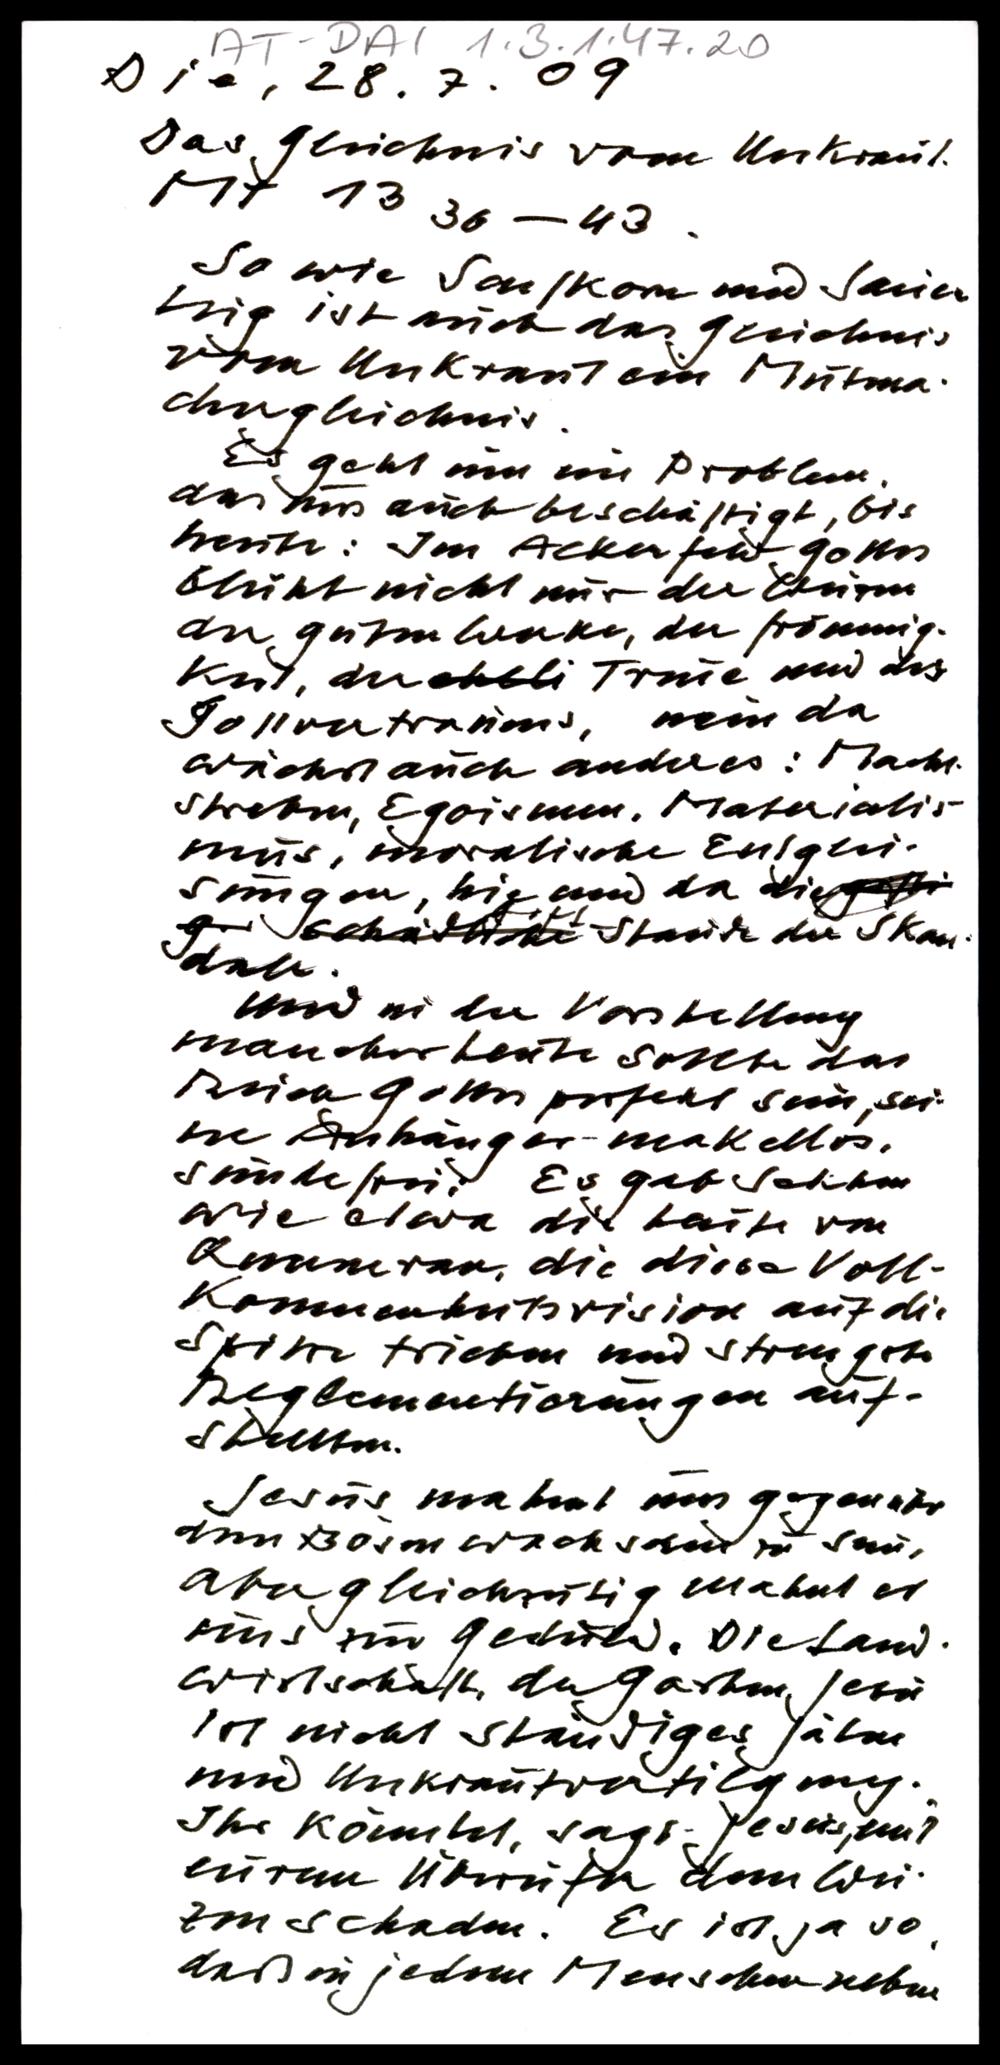 AT-DAI 1.3.1.47.20
Die, 28.7.09
Das Gleichnis vom Unkraut.
Mt 13 36–43.
So wie Senfkorn und Sauer
teig ist auch das Gleichnis
vom Unkraut ein Mutma-
chergleichnis.
Es geht um ein Problem,
das uns auch beschäftigt, bis
heute: Im Ackerfeld Gottes
blüht nicht nur der Weizen
der guten Werke, der Frömmig-
keit, der Treue und des
Gottvertrauens, nein da
wächst auch anderes: Macht-
streben, Egoismen, Materialis-
mus, moralische Entglei-
sungen, hie und da die
Staude der Skan-
dale.
Und in der Vorstellung
mancher heute sollte das
Reich Gottes perfekt sein, sei-
ne Anhänger makellos,
sündefrei. Es gab Sekten
wie etwa die Leute von
Qumran, die diese Voll-
kommenheitsvision auf die
Spitze trieben und strengste
Reglementierungen auf-
stellten.
Jesus mahnt uns gegenüber
dem Bösen wachsam zu sein,
aber gleichzeitig mahnt er
uns zur Geduld. Die Land-
wirtschaft, der Garten Jesu
ist nicht ständiges Jäten
und Unkrautvertilgung.
Ihr könntet, sagt Jesus, mit
eurem Übereifer dem Wei-
zen schaden. Es ist ja so,
daß in jedem Menschen neben